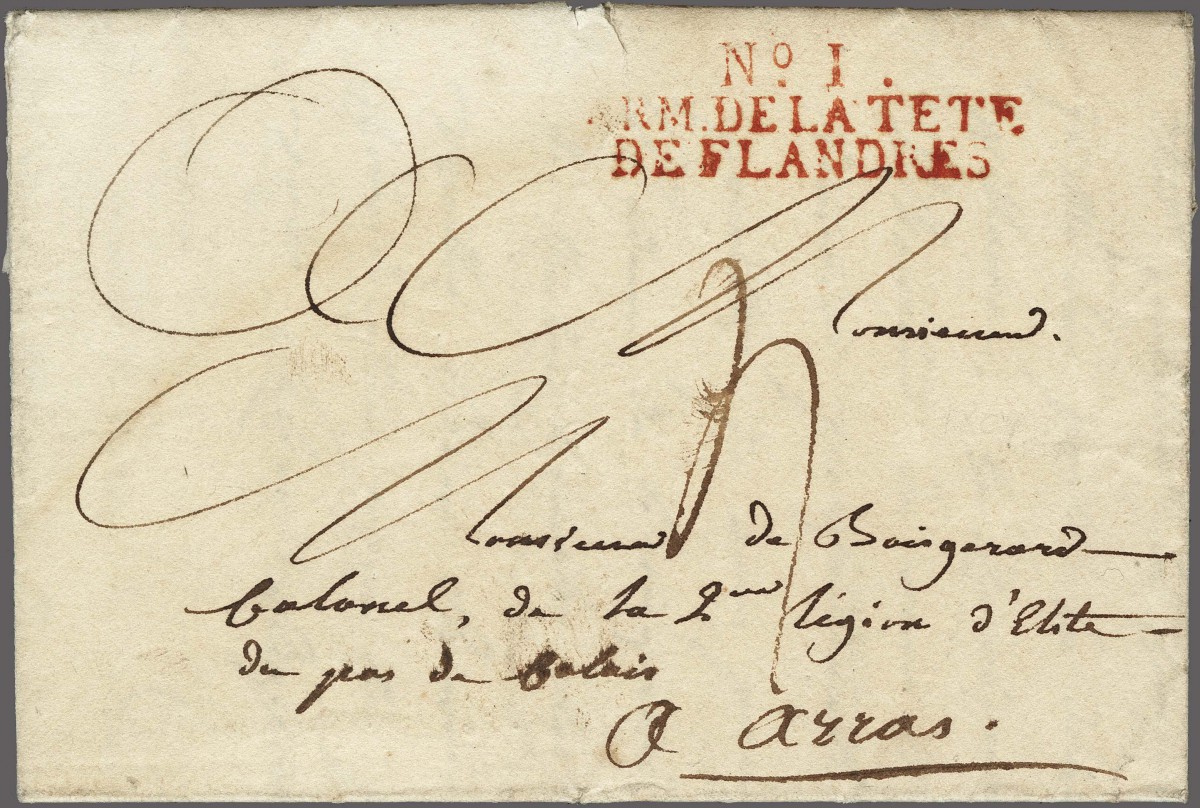 No. 1.
ARM. DE LA TETE
DE FLANDRES
Monsieur.
Monsieur de Boisgerard
Colonel, de la 2me légion d'Elite
du pas de Calais
a arras.